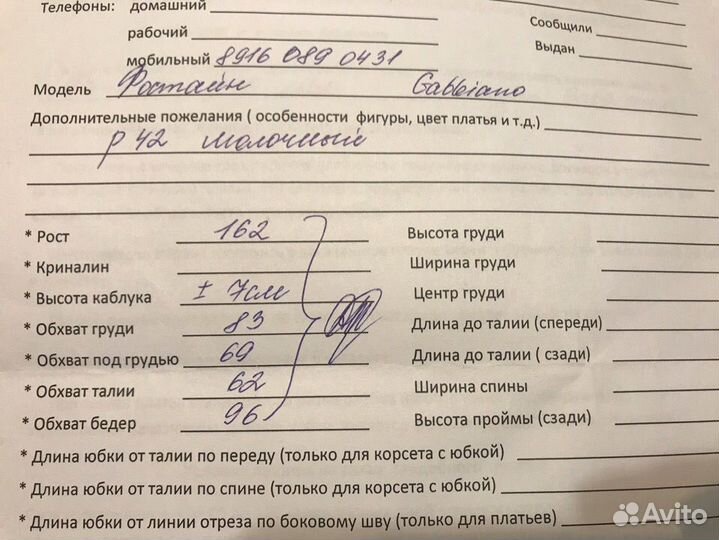 Телефоны: домашний
рабочий
Сообщили
мобильный 8916 089 0431
Выдан
Модель Фостайн Gabbiano
Дополнительные пожелания ( особенности фигуры, цвет платья и т.д.)
р 42 молочный
* Рост 162
Высота груди
* Криналин
Ширина груди
* Высота каблука ± 7см
Центр груди
* Обхват груди 83
Длина до талии (спереди)
* Обхват под грудью 69
Длина до талии ( сзади)
* Обхват талии 62
Ширина спины
* Обхват бедер 96
Высота проймы (сзади)
* Длина юбки от талии по переду (только для корсета с юбкой)
* Длина юбки от талии по спине (только для корсета с юбкой)
* Длина юбки от линии отреза по боковому шву (только для платьев)
Avito